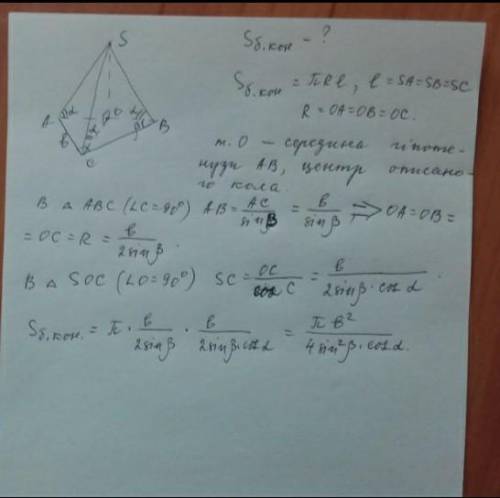 S
A
B
C
O
α
α
α
β
в
Sб.кон - ?
Sб.кон = πRl, l = SA = SB = SC
R = OA = OB = OC.
т. O – середина гіпоте-
нузи AB, центр описано-
го кола.
В △ ABC (∠C=90°) AB = AC/sinB = в/sinβ ⇒ OA = OB =
= OC = R = в/2sinβ.
В △ SOC (∠O=90°) SC = OC/cos C = в/2sinβ·cosα.
Sб.кон. = π · в/2sinβ · в/2sinβ·cosα = πв²/4sin²β·cosα.